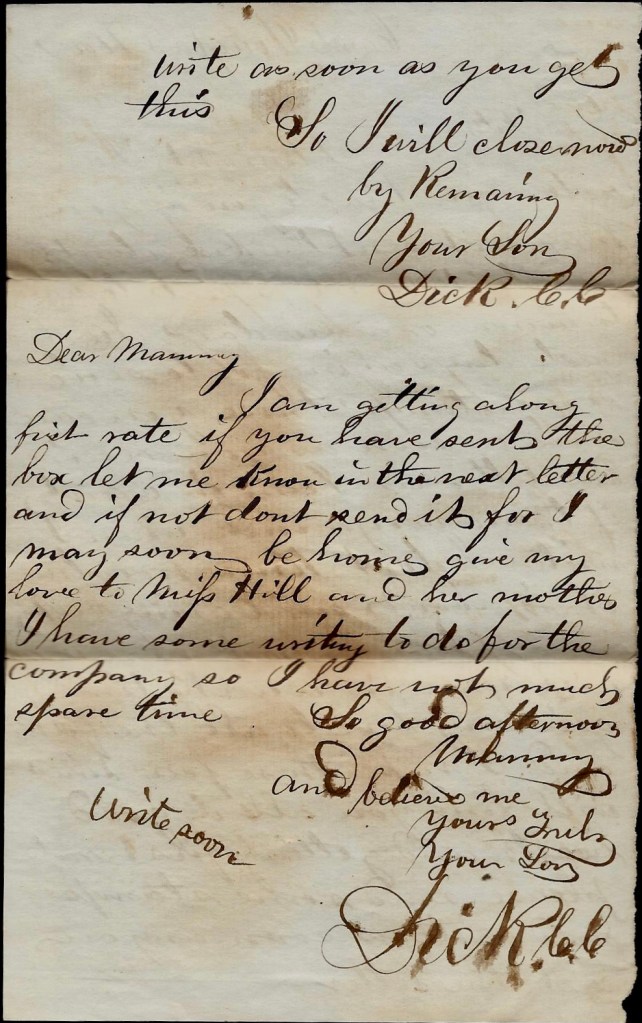 write as soon as you get
this
So I will close now
by Remaining
Your Son
Dick. C. C
Dear Mammy
I am getting along
first rate if you have sent the
box let me know in the next letter
and if not dont send it for I
may soon be home give my
love to Miss Hill and her mother
I have some writing to do for the
company so I have not much
spare time
So good afternoon
Mammy
and believe me
Yours Truly
Your Son
Write soon
Dick. C. C